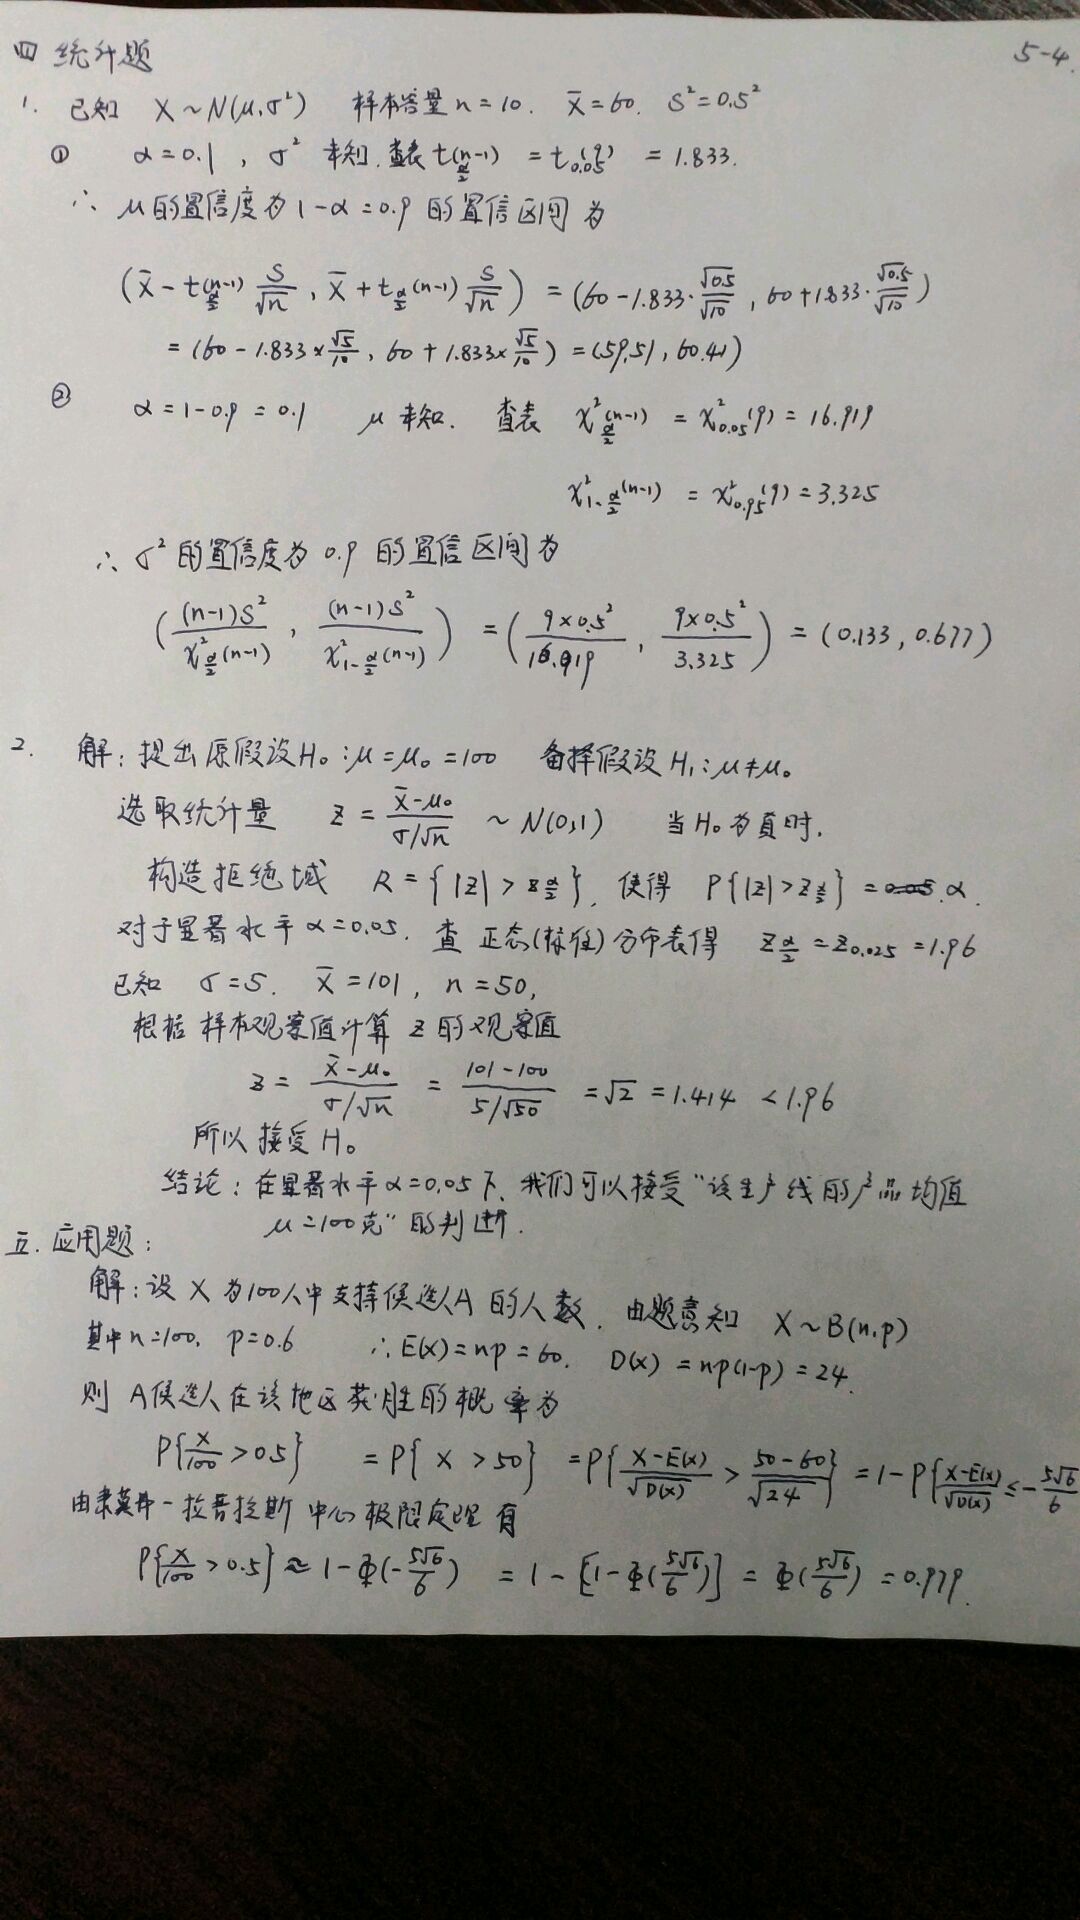 四 统计题 5-4.
1. 已知 X~N(μ,σ²) 样本容量n=10. X̄=60. S²=0.5²
① α=0.1, σ²未知.查表t_{α/2}(n-1) = t_{0.05}(9) = 1.833.
∴ μ的置信度为1-α=0.9的置信区间为
(X̄-t_{α/2}(n-1) S/√n, X̄+t_{α/2}(n-1) S/√n) = (60-1.833·√0.5/√10, 60+1.833·√0.5/√10)
= (60-1.833×√5/10, 60+1.833×√5/10) = (59.51, 60.41)
② α=1-0.9=0.1 μ未知. 查表 χ²_{α/2}(n-1) = χ²_{0.05}(9) = 16.919
χ²_{1-α/2}(n-1) = χ²_{0.95}(9) = 3.325
∴ σ²的置信度为0.9的置信区间为
((n-1)S²/χ²_{α/2}(n-1), (n-1)S²/χ²_{1-α/2}(n-1)) = (9×0.5²/16.919, 9×0.5²/3.325) = (0.133, 0.677)
2. 解:提出原假设H₀:μ=μ₀=100 备择假设H₁:μ≠μ₀
选取统计量 Z = (X̄-μ₀)/(σ/√n) ~ N(0,1) 当H₀为真时.
构造拒绝域 R={|Z|>z_{α/2}}, 使得 P{|Z|>z_{α/2}} = α.
对于显著水平α=0.05. 查正态(标准)分布表得 z_{α/2}=z_{0.025}=1.96
已知 σ=5. X̄=101, n=50,
根据样本观察值计算Z的观察值
z = (X̄-μ₀)/(σ/√n) = (101-100)/(5/√50) = √2 = 1.414 < 1.96
所以接受H₀
结论:在显著水平α=0.05下, 我们可以接受"该生产线的产品均值
μ=100克"的判断.
五. 应用题:
解:设X为100人中支持候选人A的人数. 由题意知 X~B(n,p)
其中n=100, p=0.6 ∴E(X)=np=60. D(X)=np(1-p)=24.
则A候选人在该地区获胜的概率为
P{X/100>0.5} = P{X>50} = P{(X-E(X))/√D(X) > (50-60)/√24} = 1-P{(X-E(X))/√D(X) ≤ -5√6/6
由隶莫弗-拉普拉斯中心极限定理有
P{X/100>0.5} ≈ 1-Φ(-5√6/6) = 1-[1-Φ(5√6/6)] = Φ(5√6/6) = 0.979.